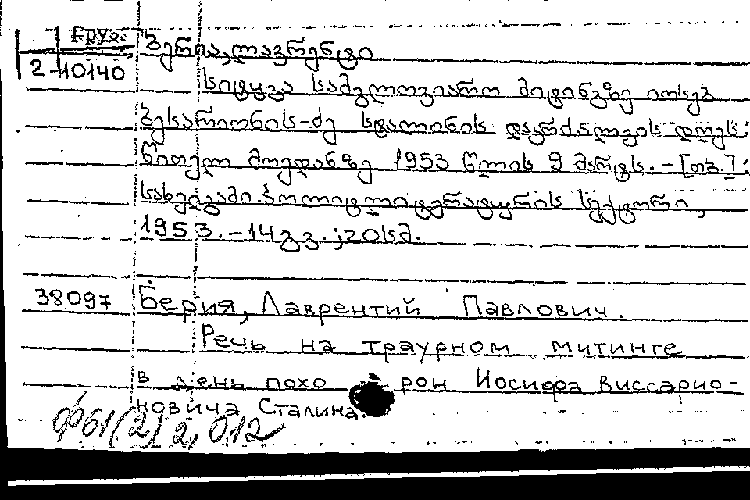 Груз.
2-10140
ბერია, ლავრენტი
სიტყვა სამგლოვიარო მიტინგზე იოსებ
ბესარიონის-ძე სტალინის დაკრძალვის დღეს:
წითელ მოედანზე 1953 წლის 9 მარტს. - [თბ.]:
სახელგამი. პოლიტლიტერატურის სექტორი,
1953. - 14 გვ.; 20 სმ.
38097 Берия, Лаврентий Павлович.
Речь на траурном митинге
в день похо рон Иосифа Виссарио-
новича Сталина.
ф61(2)2, 012